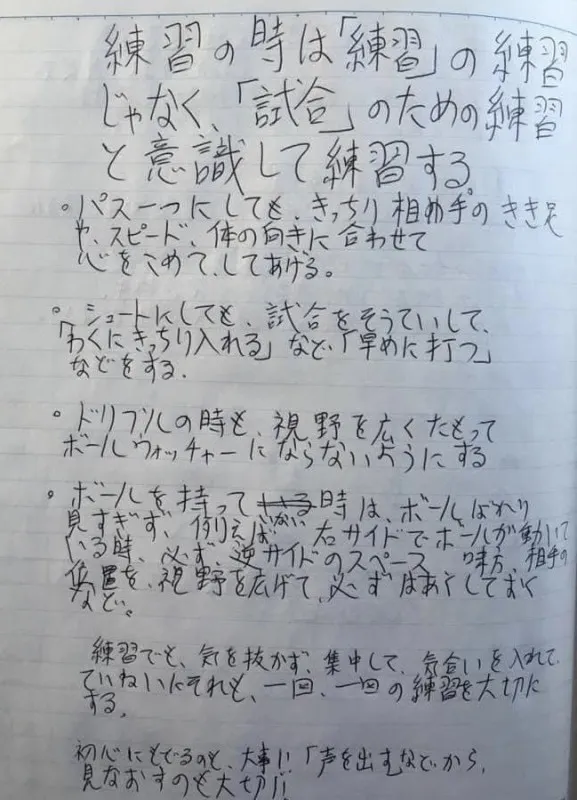 練習の時は「練習」の練習
じゃなく、「試合」のための練習
と意識して練習する。
。パス一つにしても、きっちり相手の きき足
や、スピード、体の向きに合わせて
心をこめて、してあげる。
。シュートにしても、試合をそうていして、
「わくにきっちり入れる」など、「早めに打つ」
などをする。
。ドリブルの時も、視野を広くたもって
ボールウォッチャーにならないようにする
。ボールを持ってない時は、ボールばかり
見すぎず、例えば 右サイドでボールが動いて
いる時、必ず逆サイドのスペース、味方、相手の
位置を、視野を広げて、必ずはあくしておく
など。
練習でも、気を抜かず、集中して、気合いを入れて、
ていねいにそれも、一回、一回の練習を大切に
する。
初心にもどるのも、大事!!「声を出すなどから、
見なおすのも大切!!